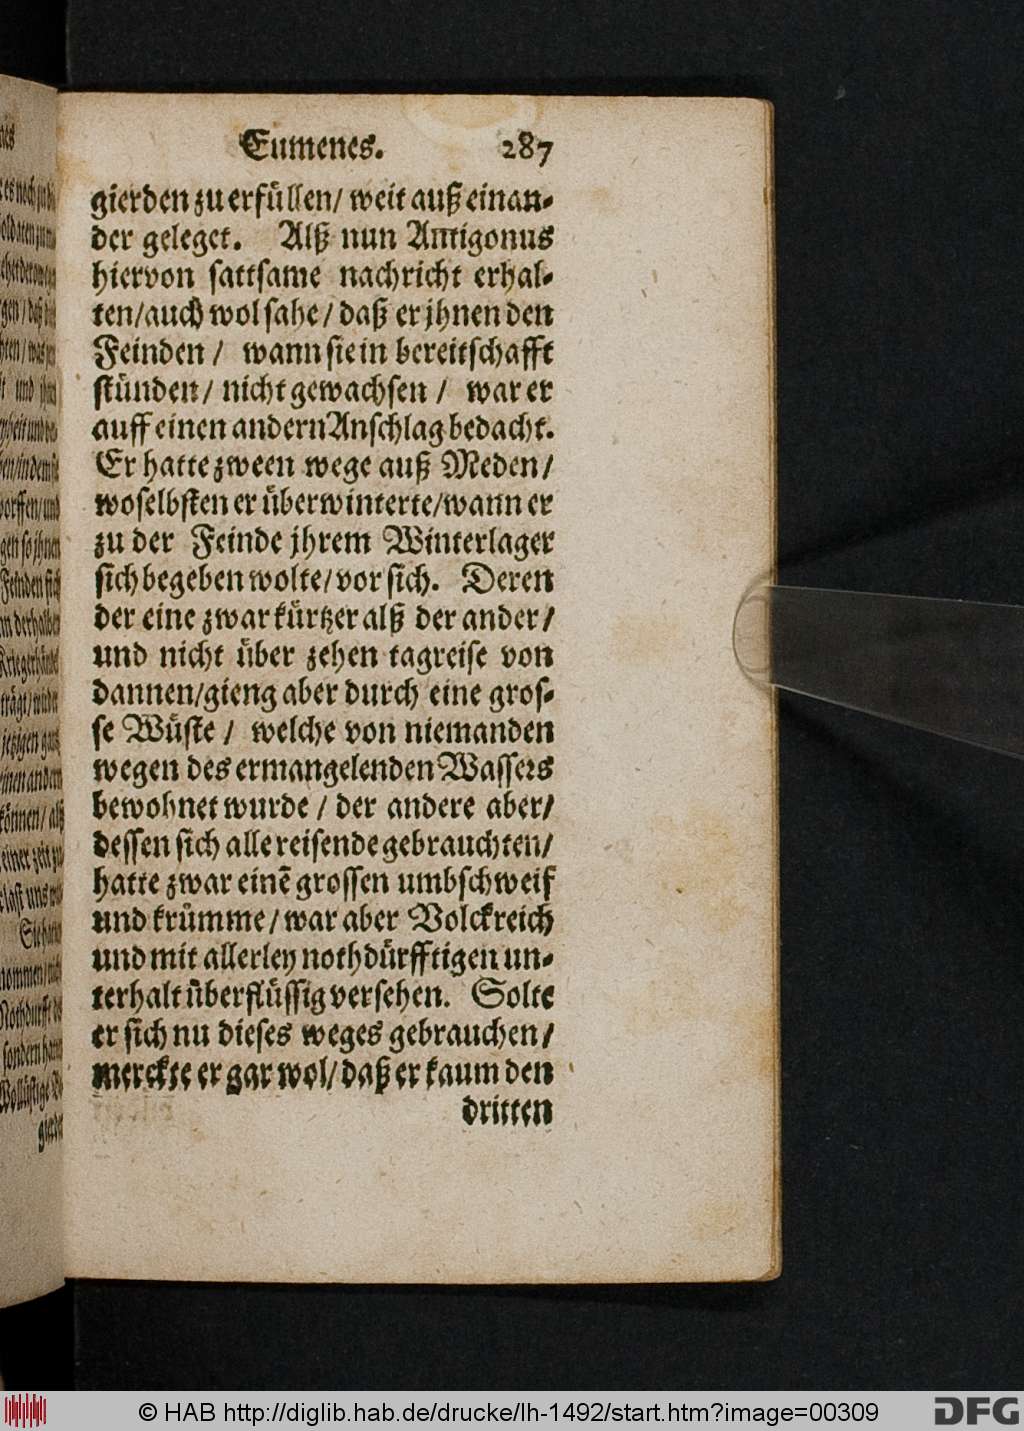 Eumenes. 287
gierden zu erfüllen/ weit auß einan-
der geleget. Alß nun Antigonus
hiervon sattsame nachricht erhal-
ten/auch wol sahe/ daß er jhnen den
Feinden / wann sie in bereitschafft
stünden/ nicht gewachsen / war er
auff einen andern Anschlag bedacht.
Er hatte zween wege auß Meden/
woselbsten er überwinterte/wann er
zu der Feinde jhrem Winterlager
sich begeben wolte/ vor sich. Deren
der eine zwar kürtzer alß der ander/
und nicht über zehen tagreise von
dannen/gieng aber durch eine gros-
se Wüste / welche von niemanden
wegen des ermangelenden Wassers
bewohnet wurde / der andere aber/
dessen sich alle reisende gebrauchten/
hatte zwar einē grossen umbschweif
und krümme/ war aber Volckreich
und mit allerley nothdürfftigen un-
terhalt überflüssig versehen. Solte
er sich nu dieses weges gebrauchen/
merckte er gar wol/ daß er kaum den
dritten
© HAB http://diglib.hab.de/drucke/lh-1492/start.htm?image=00309
DFG